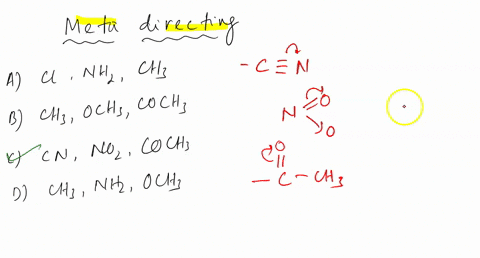 Meta directing
A) Cl, NH2, CH3
B) CH3, OCH3, COCH3
C) CN, NO2, COCH3
D) CH3, NH2, OCH3
- C ≡ N
O
N
O
O
- C - CH3